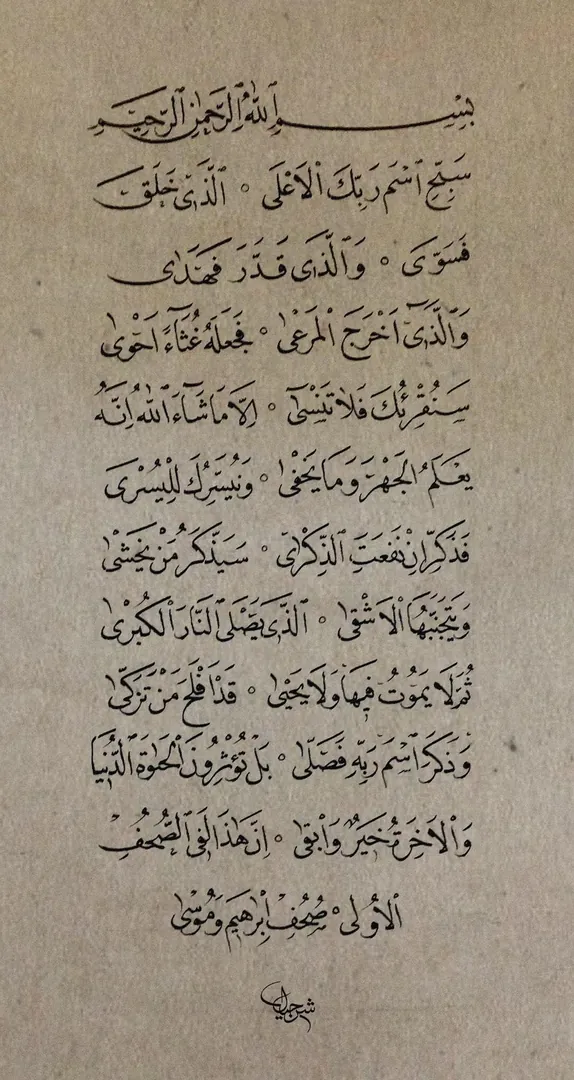 بِسْمِ ٱللّٰهِ ٱلرَّحْمٰنِ ٱلرَّحِيمِ
سَبِّحِ ٱسْمَ رَبِّكَ ٱلْاَعْلَى ۰ اَلَّذٖى خَلَقَ
فَسَوّٰى ۰ وَٱلَّذٖى قَدَّرَ فَهَدٰى
وَٱلَّذٖٓى اَخْرَجَ ٱلْمَرْعٰى ۰ فَجَعَلَهُ غُثَٓاءً اَحْوٰى
سَنُقْرِئُكَ فَلَا تَنْسٰٓى ۰ اِلَّا مَا شَٓاءَ ٱللّٰهُ اِنَّهُ
يَعْلَمُ ٱلْجَهْرَ وَمَا يَخْفٰى ۰ وَنُيَسِّرُكَ لِلْيُسْرٰى
فَذَكِّرْ اِنْ نَفَعَتِ ٱلذِّكْرٰى ۰ سَيَذَّكَّرُ مَنْ يَخْشٰى
وَيَتَجَنَّبُهَا ٱلْاَشْقٰى ۰ اَلَّذٖى يَصْلَى ٱلنَّارَ ٱلْكُبْرٰى
ثُمَّ لَا يَمُوتُ فٖيهَا وَلَا يَحْيٰى ۰ قَدْ اَفْلَحَ مَنْ تَزَكّٰى
وَذَكَرَ ٱسْمَ رَبِّهٖ فَصَلّٰى ۰ بَلْ تُؤْثِرُونَ ٱلْحَيٰوةَ ٱلدُّنْيَا
وَٱلْاٰخِرَةُ خَيْرٌ وَاَبْقٰى ۰ اِنَّ هٰذَا لَفِى ٱلصُّحُفِ
ٱلْاُولٰى ۰ صُحُفِ اِبْرٰهٖيمَ وَمُوسٰى